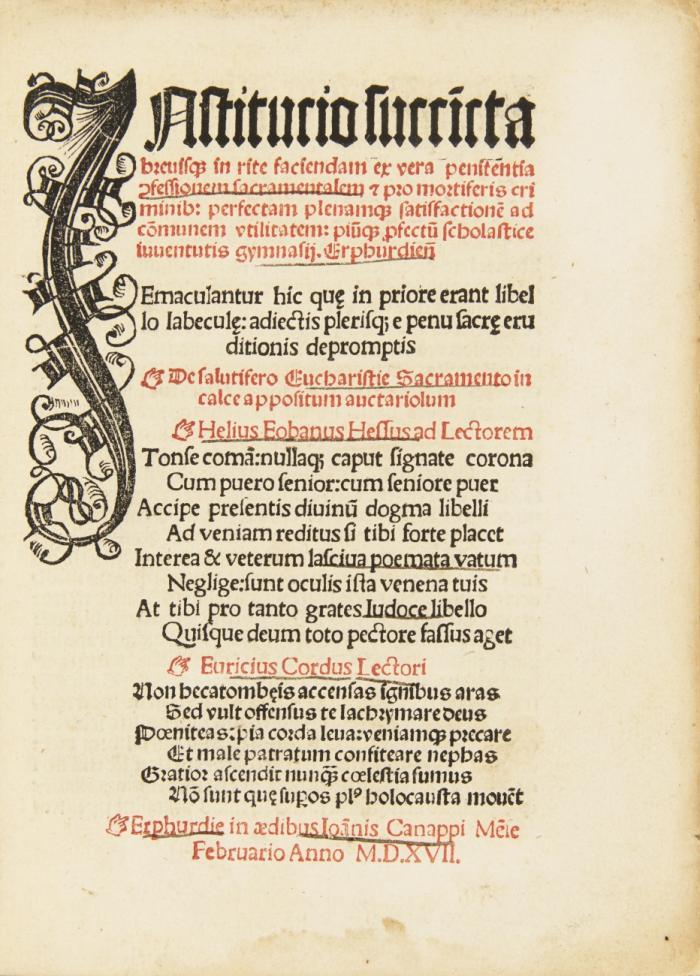 INstitucio succīcta
breuisqꝫ in rite faciendam ex vera penitentia
ꝯfessionem sacramentalem ⁊ pro mortiferis cri
minibꝰ: perfectam plenamqꝫ satisfactionē ad
cōmunem vtilitatem: piūqꝫ ꝓfectū scholastice
iuuentutis gymnasij. Erphurdieñ
Emaculantur hic quę in priore erant libel
lo labeculę: adiectis plerisqꝫ e penu sacrę eru
ditionis depromptis
☞ De salutifero Eucharistie Sacramento in
calce appositum auctariolum
☞ Helius Eobanus Hessus ad Lectorem
Tonse comā: nullaqꝫ caput signate corona
Cum puero senior: cum seniore puer
Accipe presentis diuinū dogma libelli
Ad veniam reditus si tibi forte placet
Interea & veterum lasciua poemata vatum
Neglige: sunt oculis ista venena tuis
At tibi pro tanto grates Iudoce libello
Quisque deum toto pectore fassus aget
☞ Euricius Cordus Lectori
Non hecatombęis accensas ignibus aras
Sed vult offensus te lachrymare deus
Pœniteas: pia corda leua: veniamqꝫ precare
Et male patratum confiteare nephas
Gratior ascendit nunqͣꝫ cœlestia fumus
Nō sunt quę suꝑos plꝰ holocausta mouēt
☞ Erphurdie in ædibus Ioānis Canappi Mēse
Februario Anno M.D.XVII.